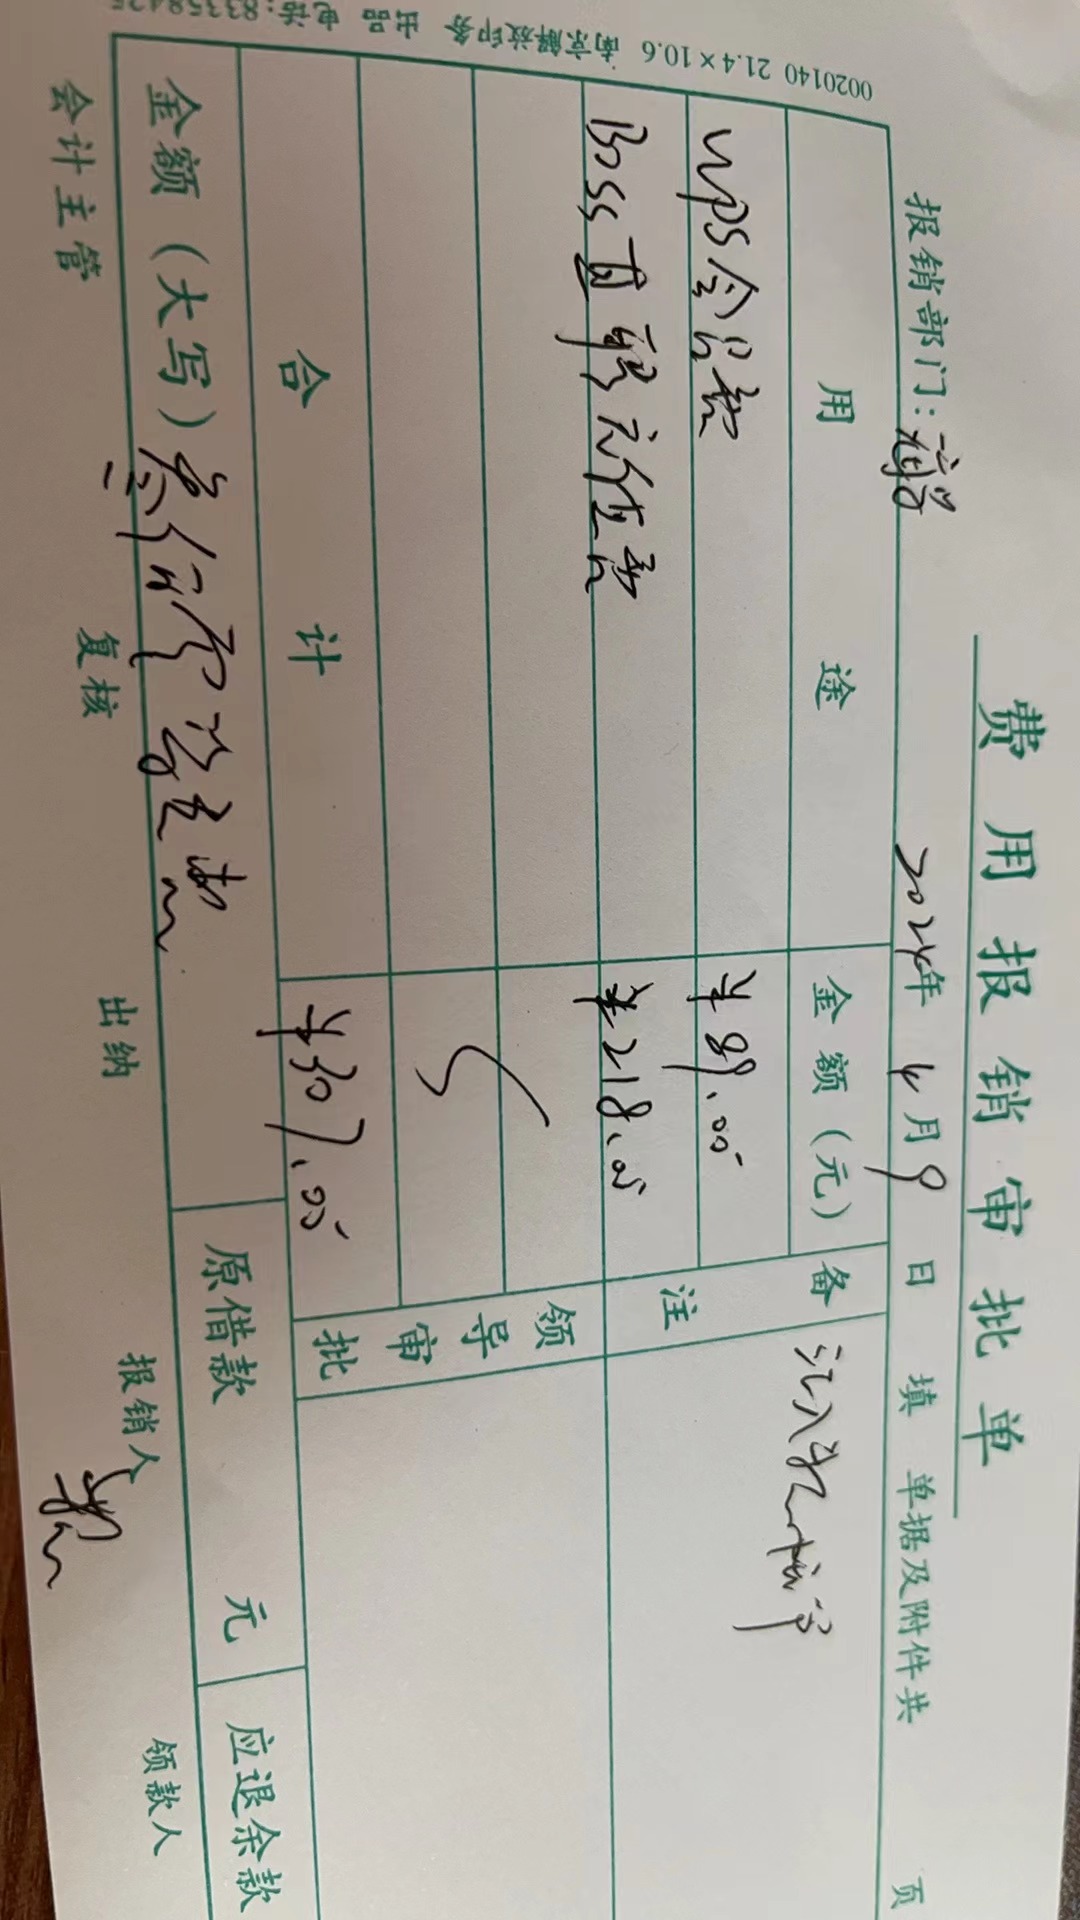 费用报销审批单
报销部门: 2024年 4月 9日 填 单据及附件共 页
用 途 金 额（元） 备注
WPS会员款 ¥89.00 汇入
Boss直聘 ¥218.00
领导审批
合 计 ¥307.00
金额（大写） 叁佰零 原借款 元 应退余款
会计主管 复核 出纳 报销人 领款人
0020140 21.4×10.6 南京解放印务 出品 电话:83358425